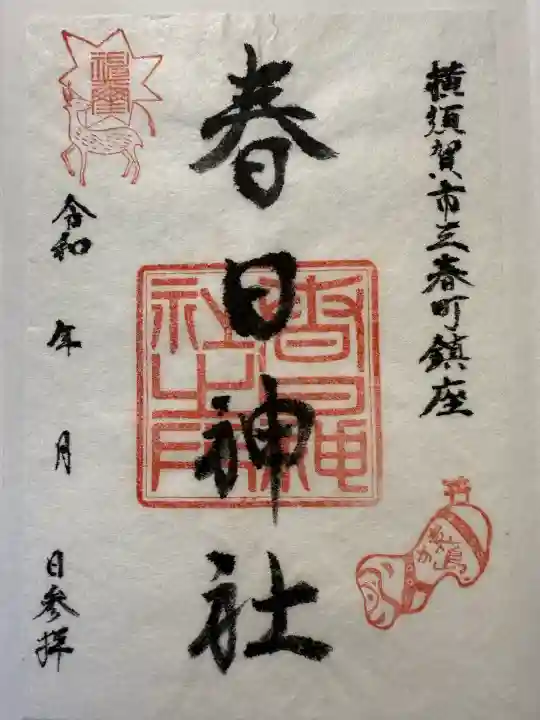 横須賀市三春町鎮座
春日神社
春日神社之印
猿島
令和 年 月 日参拝